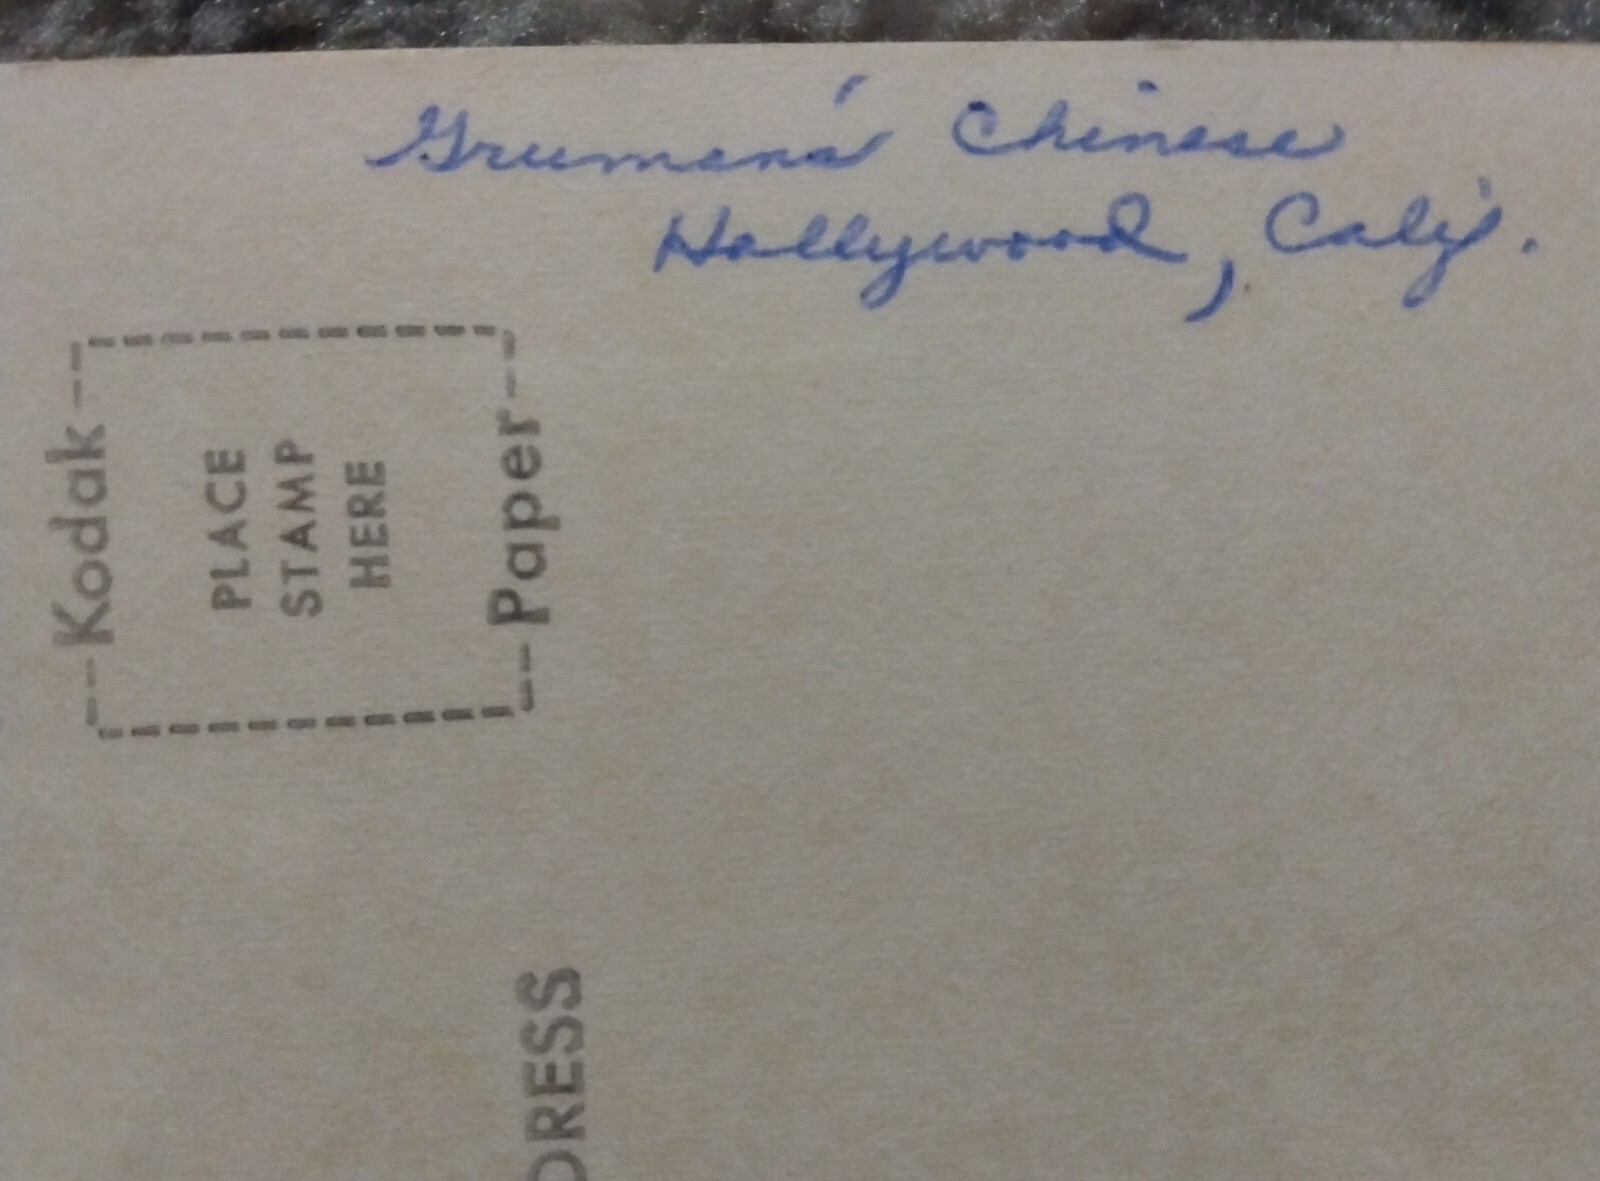 Grumens' Chinese
Hollywood, Calif.
Kodak
PLACE
STAMP
HERE
Paper
DRESS